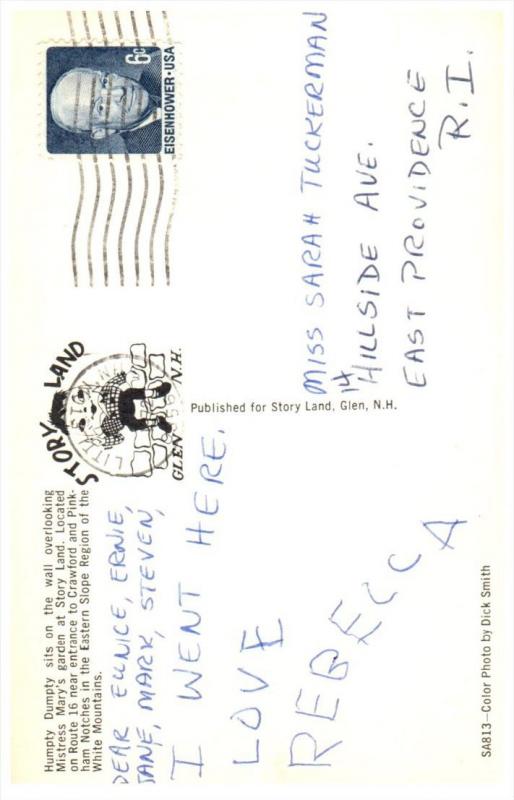 Humpty Dumpty sits on the wall overlooking
Mistress Mary's garden at Story Land. Located
on Route 16 near entrance to Crawford and Pink-
ham Notches in the Eastern Slope Region of the
White Mountains.
STORY LAND
GLEN N.H.
6c
EISENHOWER·USA
DEAR EUNICE, ERNIE,
JANE, MARK, STEVEN,
I WENT HERE.
LOVE
REBECCA
Published for Story Land, Glen, N.H.
MISS SARAH TUCKERMAN
14
HILLSIDE AVE.
EAST PROVIDENCE
R.I.
SA813—Color Photo by Dick Smith